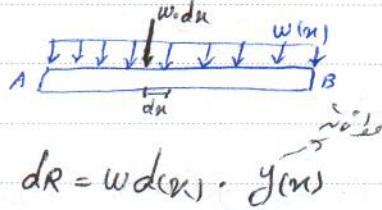 w.dx
w(x)
A
B
dx
dR = w d(x) . y(x)